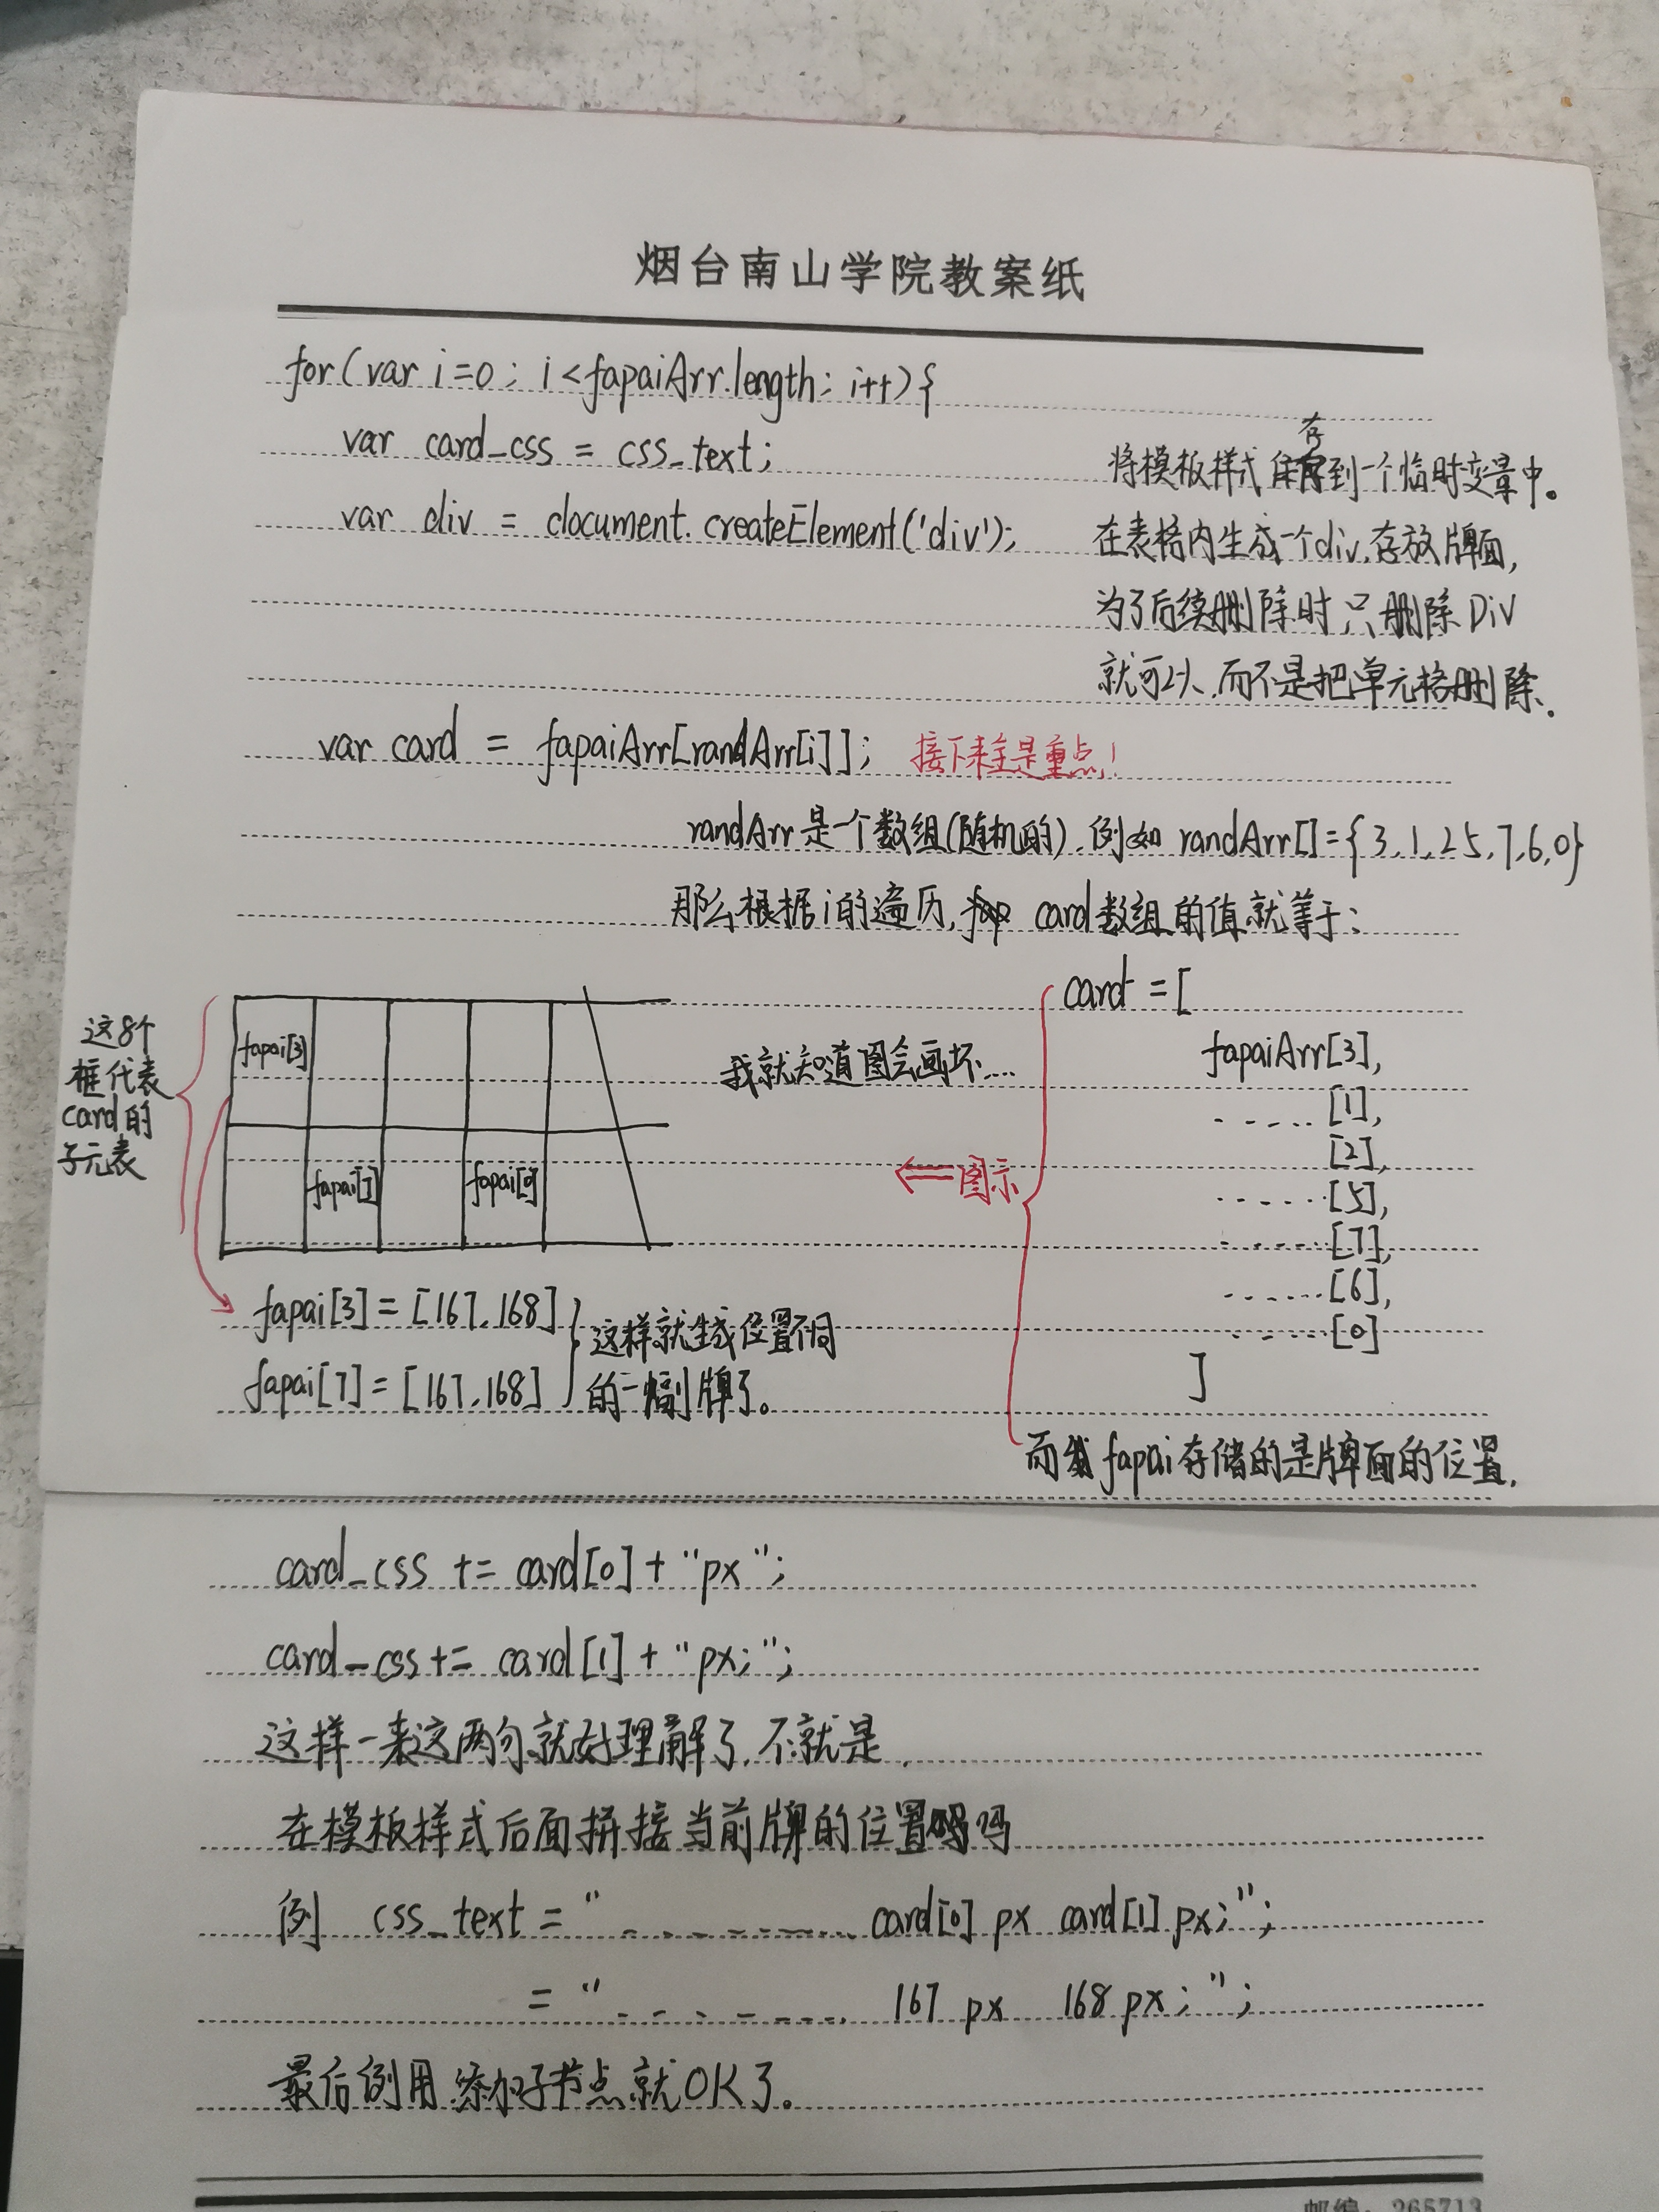 烟台南山学院教案纸
for(var i=0; i<fapaiArr.length; i++){
var card_css = css_text;
将模板样式保存到一个临时变量中。
var div = document.createElement('div');
在表格内生成一个div,存放牌面,
为了后续删除时只删除Div
就可以,而不是把单元格删除.
var card = fapaiArr[randArr[i]];
接下来全是重点!
randArr是一个数组(随机的),例如 randArr[]={3,1,2 5,7,6,0}
那么根据i的遍历, card数组的值就等于:
card = [
fapaiArr[3],
......[1],
[2],
......[5],
......[7],
......[6],
......[0]
]
这8个
框代表
card的
子元表
fapai[3]
fapai[7]
fapai[0]
我就知道图会画坏....
图示
fapai[3]=[167,168]
fapai[7]=[167,168]
这样就生成位置不同
的一副牌了。
而 fapai存储的是牌面的位置.
card_css += card[0]+"px";
card_css += card[1]+"px;";
这样一来这两句就好理解了,不就是,
在模板样式后面拼接当前牌的位置吗
例 css_text = ".......... card[0] px card[1] px;";
= ".......... 167 px 168 px;";
最后例用添加子节点就OK了。
邮编: 265713